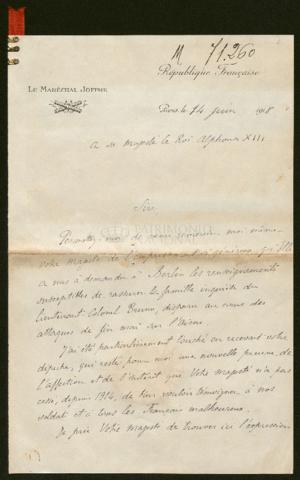 M 71.260
République Française
LE MARÉCHAL JOFFRE
Paris, le 14 juin 1918
A sa Majesté le Roi Alphonse XIII
Sire
Permettez-moi de vous remercier moi-même
votre Majesté de l'empressement si généreux qu'Elle
a mis à demander à Berlin les renseignements
susceptibles de rassurer la famille inquiète du
Lieutenant Colonel disparu au cours des
attaques de fin mai sur l'Aisne.
J'ai été particulièrement touché en recevant votre
dépêche, qui reste pour moi une nouvelle preuve de
l'affection et de l'intérêt que Votre Majesté n'a pas
cessé, depuis 1914, de bien vouloir témoigner à nos
soldats et à tous les Français malheureux.
Je prie Votre Majesté de trouver ici l'expression
PATRIMONIO
NACIONAL